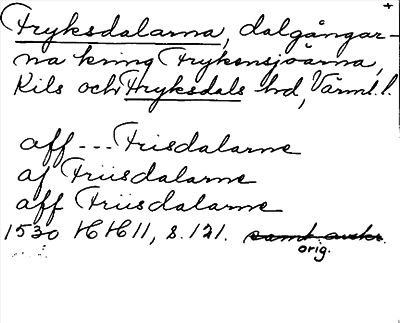 +
Fryksdalarna, dalgångar-
na kring Frykensjöarna,
Kils och Fryksdals hd, Värml. l.
aff --- Frisdalarne
af Friisdalarne
aff Friisdalarne
1530 HH 11, s. 121. samt avskr.
orig.